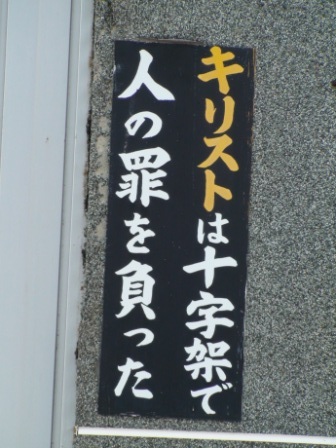 キリストは十字架で
人の罪を負った